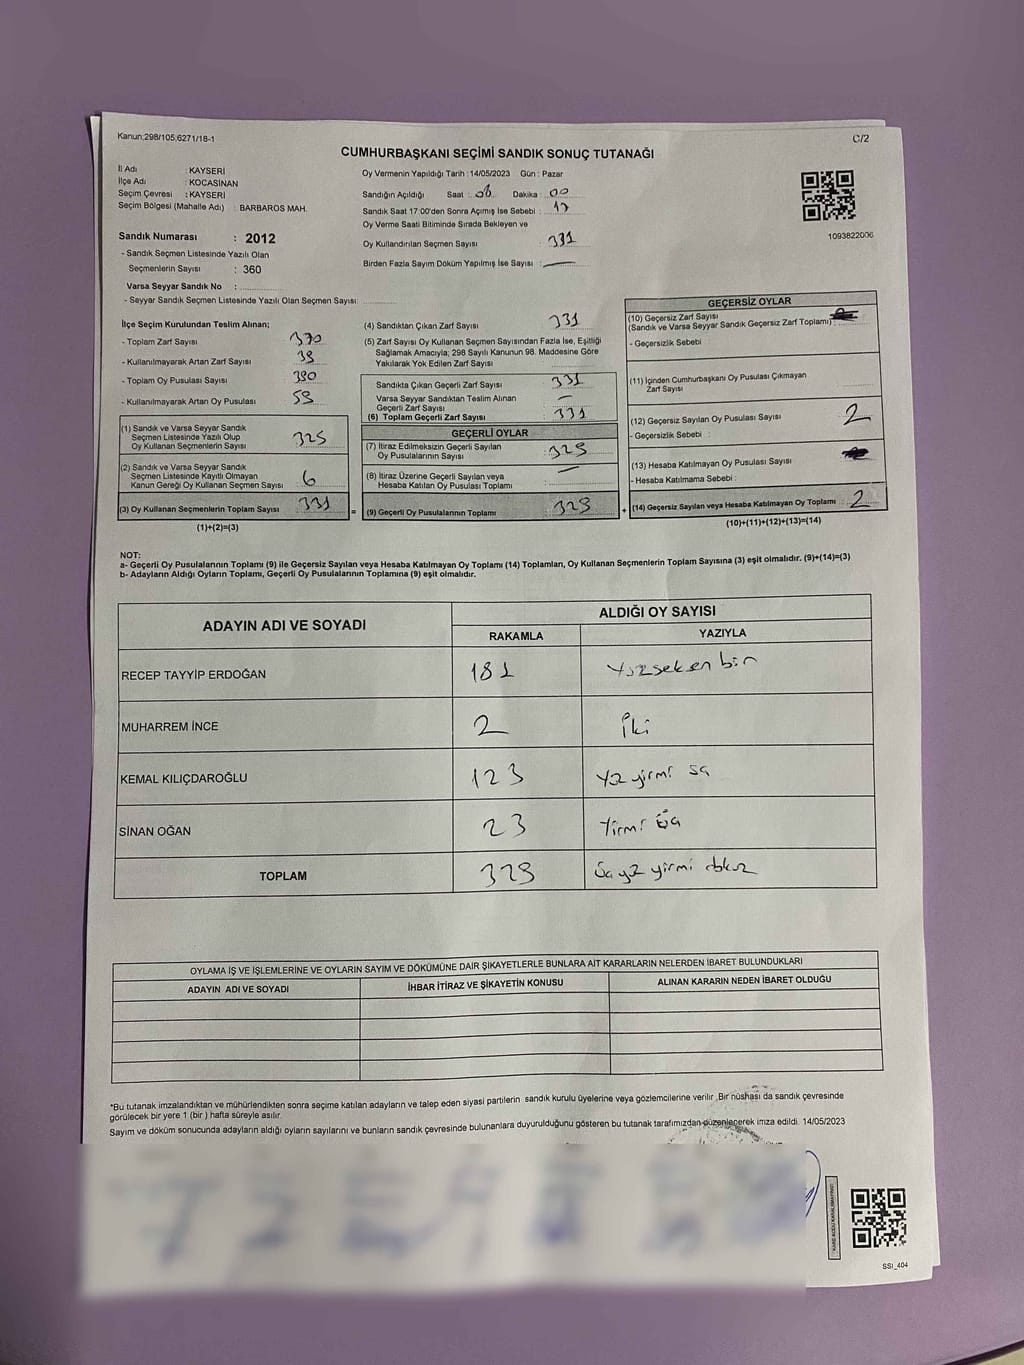 Kanun;298/105,6271/18-1
C/2
CUMHURBAŞKANI SEÇİMİ SANDIK SONUÇ TUTANAĞI
İl Adı : KAYSERİ
İlçe Adı : KOCASİNAN
Seçim Çevresi : KAYSERİ
Seçim Bölgesi (Mahalle Adı) : BARBAROS MAH.
Sandık Numarası : 2012
- Sandık Seçmen Listesinde Yazılı Olan
Seçmenlerin Sayısı : 360
Varsa Seyyar Sandık No :
- Seyyar Sandık Seçmen Listesinde Yazılı Olan Seçmen Sayısı:
Oy Vermenin Yapıldığı Tarih :14/05/2023 Gün : Pazar
Sandığın Açıldığı Saat : 08 Dakika : 00
Sandık Saat 17:00'den Sonra Açımış İse Sebebi : 17
Oy Verme Saati Bitiminde Sırada Bekleyen ve
Oy Kullandırılan Seçmen Sayısı : 331
Birden Fazla Sayım Döküm Yapılmış İse Sayısı : —
1093822006
İlçe Seçim Kurulundan Teslim Alınan;
- Toplam Zarf Sayısı 370
- Kullanılmayarak Artan Zarf Sayısı 39
- Toplam Oy Pusulası Sayısı 390
- Kullanılmayarak Artan Oy Pusulası 59
(1) Sandık ve Varsa Seyyar Sandık
Seçmen Listesinde Yazılı Olup
Oy Kullanan Seçmenlerin Sayısı 325
(2) Sandık ve Varsa Seyyar Sandık
Seçmen Listesinde Kayıtlı Olmayan
Kanun Gereği Oy Kullanan Seçmen Sayısı 6
(3) Oy Kullanan Seçmenlerin Toplam Sayısı 331
(1)+(2)=(3)
=
(4) Sandıktan Çıkan Zarf Sayısı 331
(5) Zarf Sayısı Oy Kullanan Seçmen Sayısından Fazla İse, Eşitliği
Sağlamak Amacıyla; 298 Sayılı Kanunun 98. Maddesine Göre
Yakılarak Yok Edilen Zarf Sayısı
Sandıkta Çıkan Geçerli Zarf Sayısı 331
Varsa Seyyar Sandıktan Teslim Alınan
Geçerli Zarf Sayısı —
(6) Toplam Geçerli Zarf Sayısı 331
GEÇERLİ OYLAR
(7) İtiraz Edilmeksizin Geçerli Sayılan
Oy Pusulalarının Sayısı : 329
(8) İtiraz Üzerine Geçerli Sayılan veya
Hesaba Katılan Oy Pusulası Toplamı : —
(9) Geçerli Oy Pusulalarının Toplamı 329
+
GEÇERSİZ OYLAR
(10) Geçersiz Zarf Sayısı
(Sandık ve Varsa Seyyar Sandık Geçersiz Zarf Toplamı)
- Geçersizlik Sebebi
(11) İçinden Cumhurbaşkanı Oy Pusulası Çıkmayan
Zarf Sayısı
(12) Geçersiz Sayılan Oy Pusulası Sayısı 2
- Geçersizlik Sebebi :
(13) Hesaba Katılmayan Oy Pusulası Sayısı
- Hesaba Katılmama Sebebi :
(14) Geçersiz Sayılan veya Hesaba Katılmayan Oy Toplamı 2
(10)+(11)+(12)+(13)=(14)
NOT:
a- Geçerli Oy Pusulalarının Toplamı (9) ile Geçersiz Sayılan veya Hesaba Katılmayan Oy Toplamı (14) Toplamları, Oy Kullanan Seçmenlerin Toplam Sayısına (3) eşit olmalıdır. (9)+(14)=(3)
b- Adayların Aldığı Oyların Toplamı, Geçerli Oy Pusulalarının Toplamına (9) eşit olmalıdır.
ADAYIN ADI VE SOYADI
ALDIĞI OY SAYISI
RAKAMLA YAZIYLA
RECEP TAYYİP ERDOĞAN 181 Yüzseksen bir
MUHARREM İNCE 2 İki
KEMAL KILIÇDAROĞLU 123 Yüz yirmi üç
SİNAN OĞAN 23 Yirmi üç
TOPLAM 329 Üç yüz yirmi dokuz
OYLAMA İŞ VE İŞLEMLERİNE VE OYLARIN SAYIM VE DÖKÜMÜNE DAİR ŞİKAYETLERLE BUNLARA AİT KARARLARIN NELERDEN İBARET BULUNDUKLARI
ADAYIN ADI VE SOYADI İHBAR İTİRAZ VE ŞİKAYETİN KONUSU ALINAN KARARIN NEDEN İBARET OLDUĞU
*Bu tutanak imzalandıktan ve mühürlendikten sonra seçime katılan adayların ve talep eden siyasi partilerin sandık kurulu üyelerine veya gözlemcilerine verilir ,Bir nüshası da sandık çevresinde
görülecek bir yere 1 (bir ) hafta süreyle asılır.
Sayım ve döküm sonucunda adayların aldığı oyların sayılarını ve bunların sandık çevresinde bulunanlara duyurulduğunu gösteren bu tutanak tarafımızdan düzenlenerek imza edildi. 14/05/2023
SSI_404